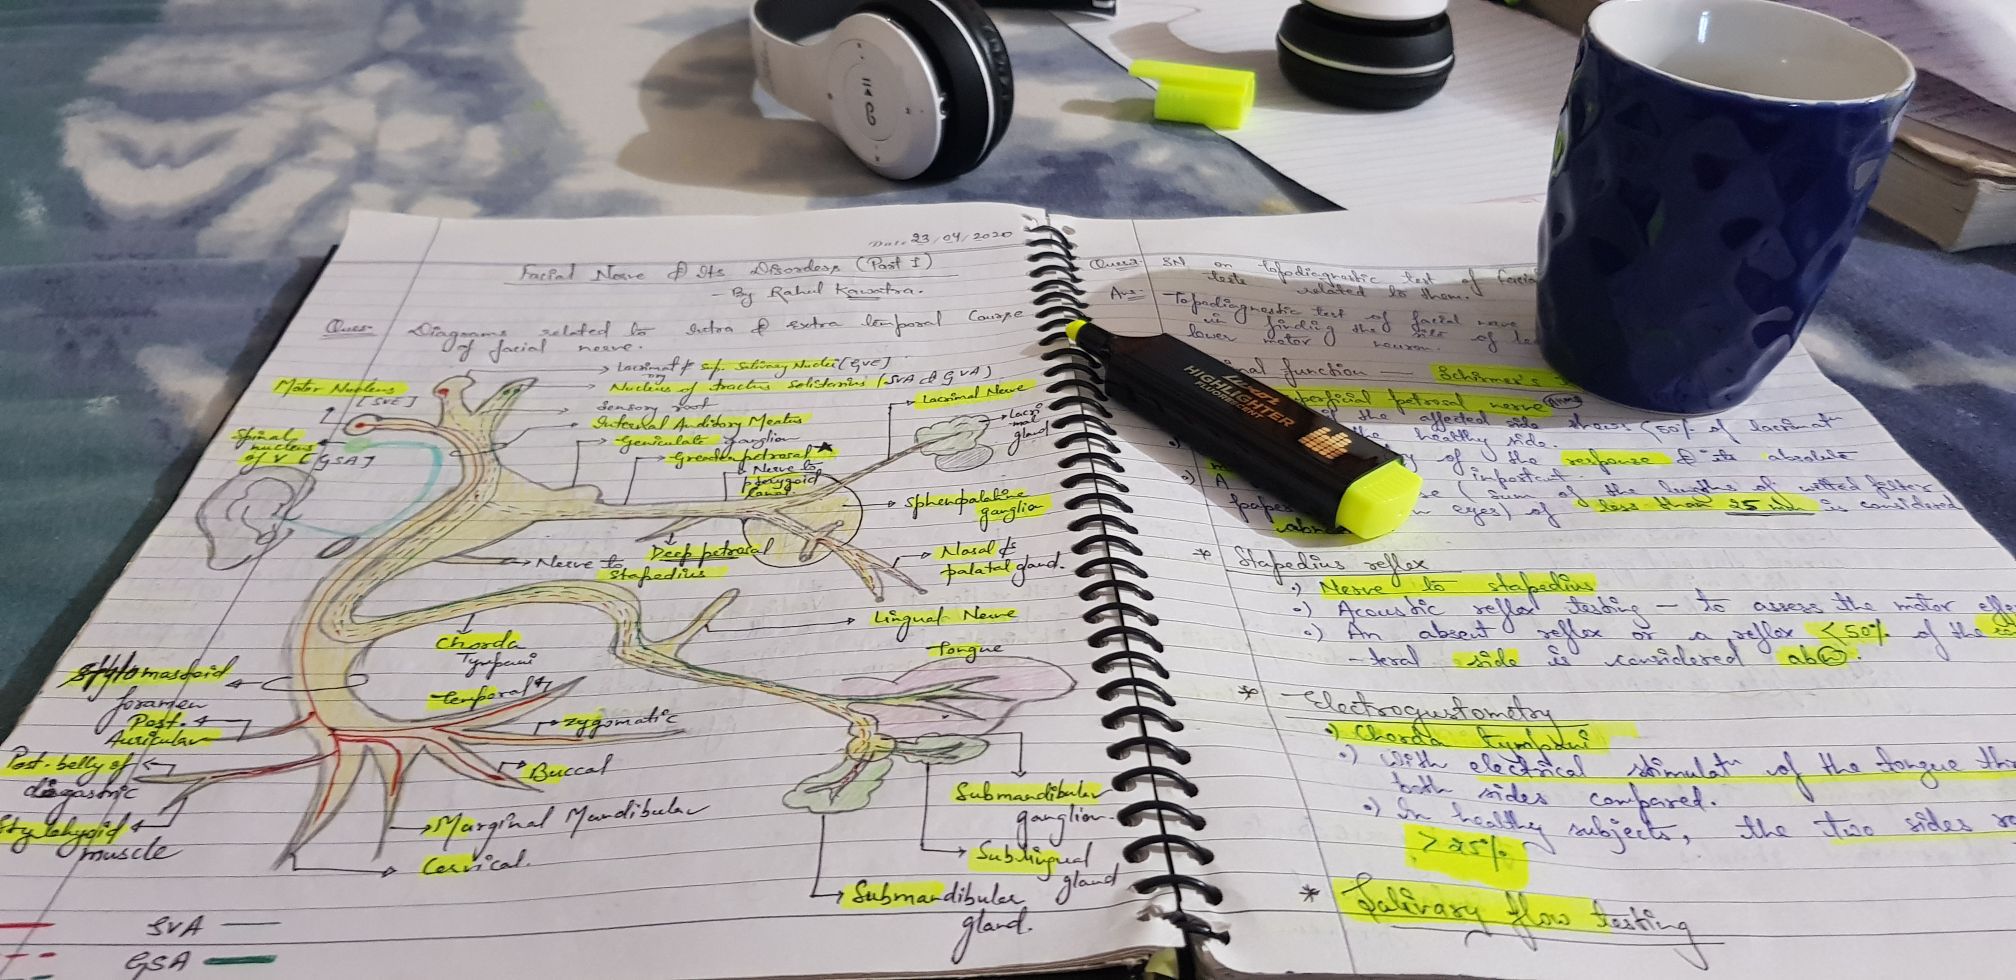 Date 23/04/2020
Facial Nerve & Its Disorders (Part I)
- By Rahul Kawatra.
Ques- Diagrams related to Intra & Extra temporal Course
of facial nerve.
Lacrimal & Sup. Salivary Nuclei [GVE]
Motor Nucleus
[SVE]
Nucleus of tractus Solitarius (SVA & GVA)
Sensory root
Internal Auditory Meatus
Geniculate ganglion
Greater petrosal
Nerve to
pterygoid
Canal
Lacrimal Nerve
Lacri
mal
gland
Spinal
nucleus
of V [GSA]
Sphenpalatine
ganglia
Deep petrosal
Nasal &
palatal gland.
Nerve to
stapedius
Lingual Nerve
Tongue
Chorda
Tympani
Stylomastoid
foramen
temporal
Zygomatic
Post.
Auricular
Buccal
Post. belly of
digastric
Stylohyoid
muscle
Marginal Mandibular
Cervical.
Submandibular
ganglion.
Sublingual
gland
Submandibular
gland.
SVA
GSA
Ques- SN on topodiagnostic test of facial
tests related to them.
Ans:- -Topodiagnostic test of facial nerve
in finding the site of
lower motor neuron.
nal function - Schirmer's
perficial petrosal nerve
the affected side shows <50% of lacrimat
the healthy side.
of the response & its absolute
important.
(sum of the lengths of wetted filter
eyes) of less than 25 mm is considered
Luxor
HIGHLIGHTER
FLUORESCENT
* Stapedius reflex
•) Nerve to stapedius
•) Acoustic reflex testing - to assess the motor
•) An absent reflex or a reflex <50% of the
-teral side is considered abn.
* Electrogustometry
•) Chorda tympani
•) With electrical stimulatn of the tongue
both sides compared.
•) In healthy subjects, the two sides
>25%
* Salivary flow testing